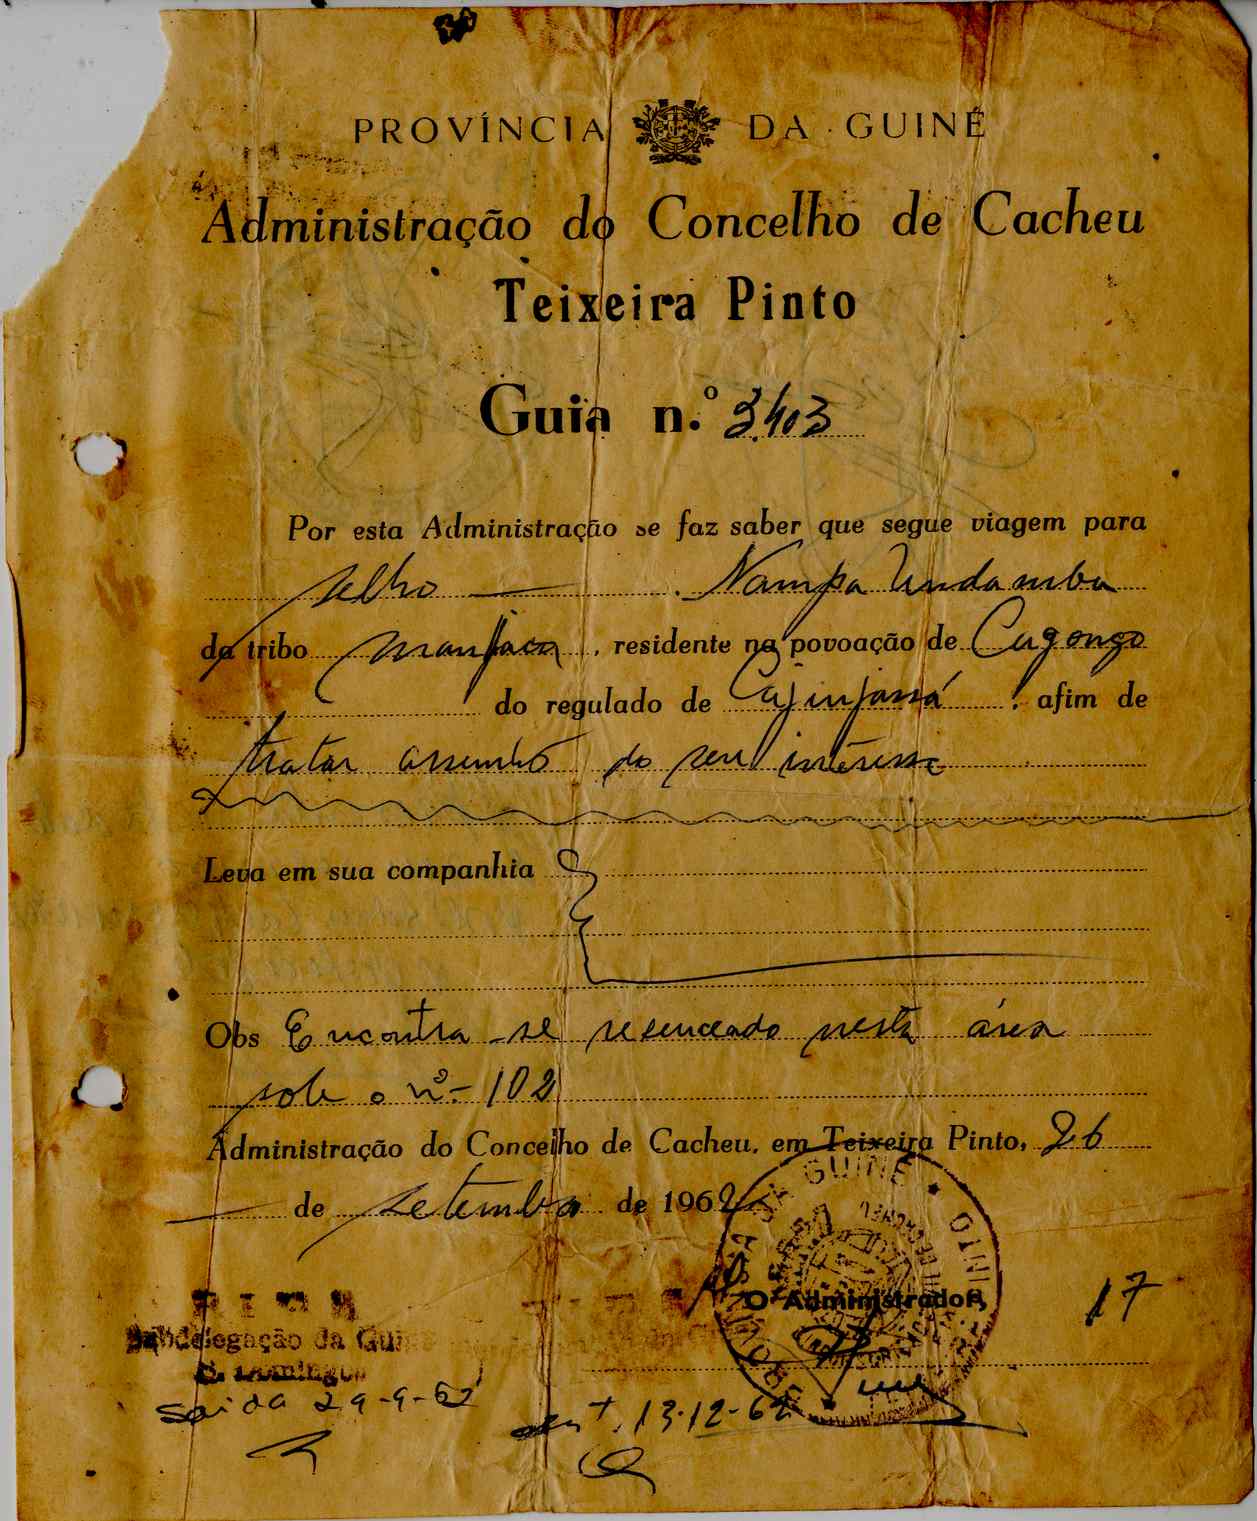 PROVÍNCIA DA GUINÉ
Administração do Concelho de Cacheu
Teixeira Pinto
Guia n.º 3.403
Por esta Administração se faz saber que segue viagem para
Selho — Nampa Undamba
da tribo manjaca, residente na povoação de Cugongo
do regulado de Cajinjassá, afim de
tratar assunto do seu interesse
Leva em sua companhia
Obs Encontra-se resenceado nesta área
sob o nº- 102
Administração do Concelho de Cacheu, em Teixeira Pinto, 26
de setembro de 1962
PROVÍNCIA DA GUINÉ
O Administrador,
17
Subdelegação da Guiné
S. Domingos
Saida 29-9-62
13-12-62